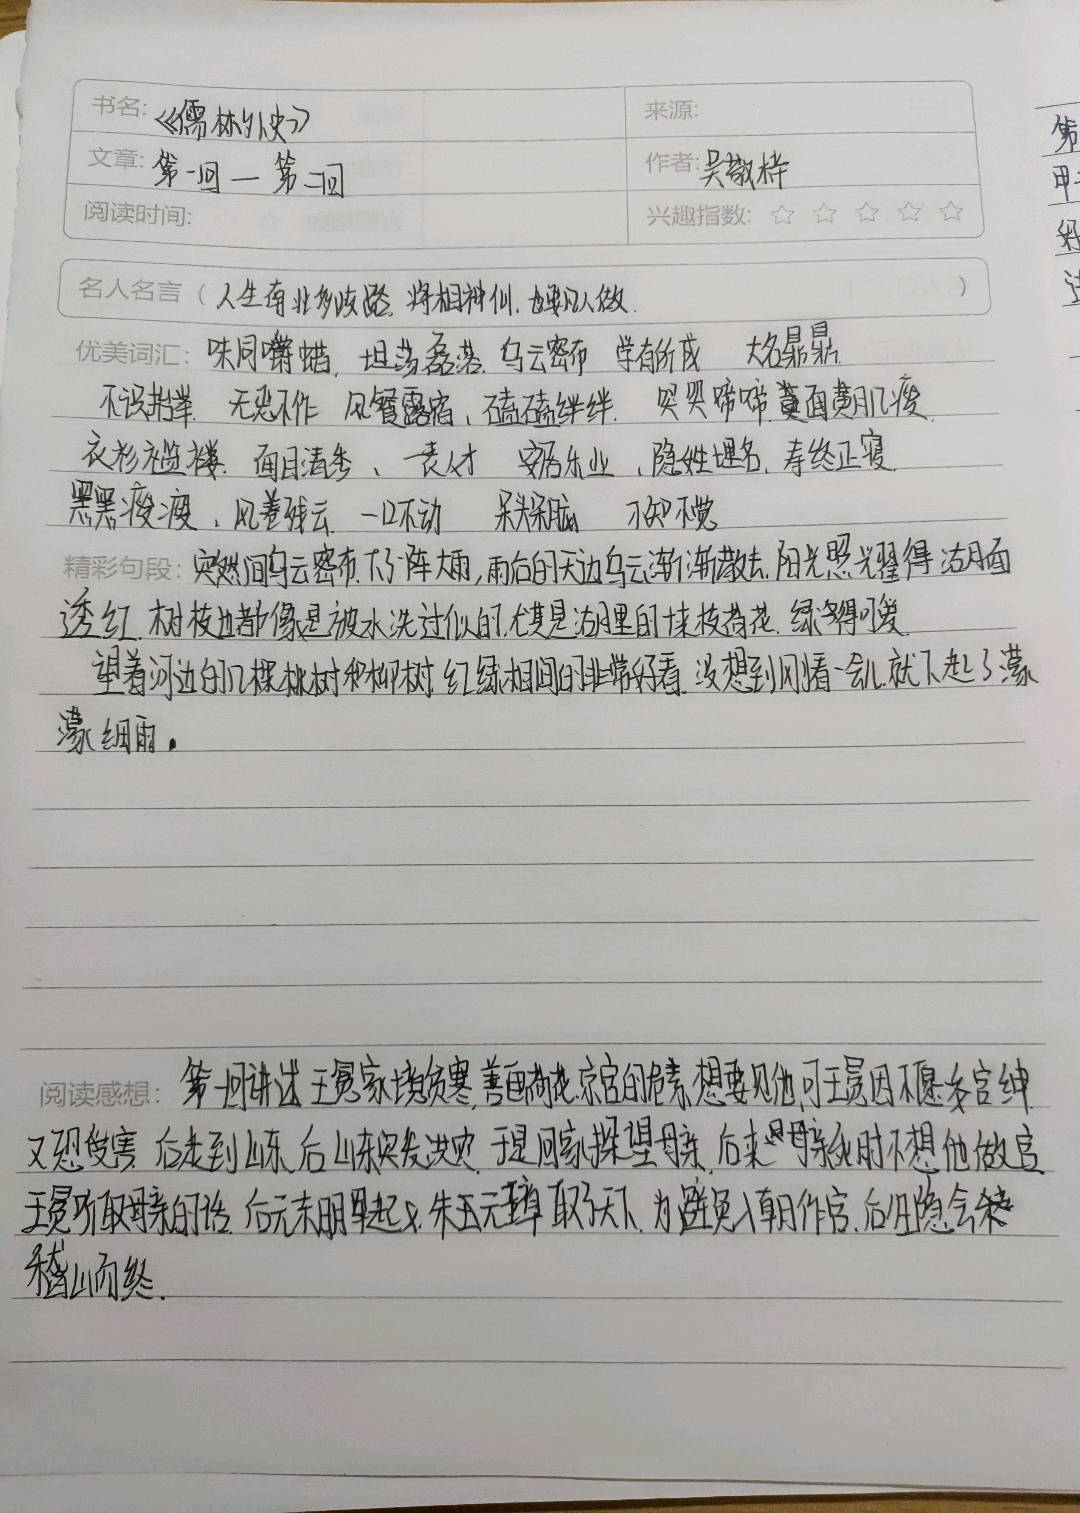 书名:《儒林外史》 来源:
文章:第一回—第二回 作者:吴敬梓
阅读时间: 兴趣指数: ☆ ☆ ☆ ☆ ☆
名人名言(人生南北多歧路.将相神仙.也要凡人做.)
优美词汇: 味同嚼蜡. 坦荡磊落. 乌云密布 学有所成 大名鼎鼎
不识抬举. 无恶不作 风餐露宿、磕磕绊绊. 哭哭啼啼.黄面肌瘦.
衣衫褴褛. 面目清秀、一表人才 安居乐业、隐姓埋名. 寿终正寝.
黑黑瘦瘦、风卷残云. 一口不动 呆头呆脑 不知不觉
精彩句段: 突然间乌云密布.下了阵大雨,雨后的天边乌云渐渐散去.阳光照耀得湖面
透红.树枝也都像是被水洗过似的.尤其是湖里的十来枝荷花.绿得可爱.
望着河边的几棵桃树和柳树.红绿相间的非常好看.没想到刚看一会儿.就下起了濛
濛细雨。
阅读感想: 第一回讲述王冕家境贫寒,善画荷花.京官的危素想要见他,可王冕因不愿多官绅
又恐受害 后走到山东.后山东突发洪灾.于是回家探望母亲.后来母亲死时不想他做官
王冕听取母亲的话.后元末明早起义.朱五元璋取了天下.为避免入朝作官.后归隐会稽
稽山而终.
第
甲
好